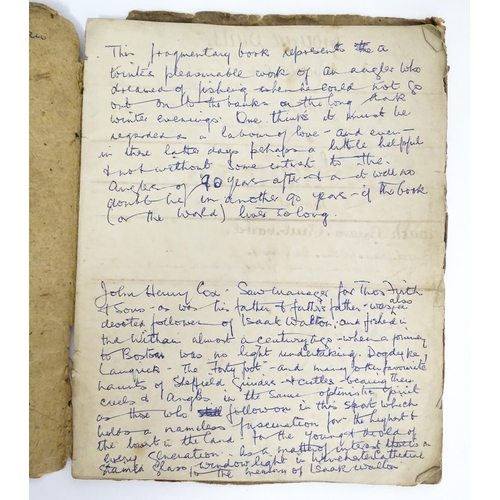 This fragmentary book represents a
winters pleasurable work of an angler who
dreamed of fishing when he could not go
out on to the banks on the long dark
winter evenings. One thinks it must be
regarded as a labour of love - and even
in these latter days perhaps a little helpful
& not without some interest to the
Angler of 90 years after & and it will no
doubt be in another 90 years - if the book
(or the World) lives so long.
John Henry Cox - Saw manager for Thos Firth
& Sons - as was his father & father's father - was also a
devoted follower of Isaak Walton, and fished in
the Witham almost a century ago - when a journey
to Boston was no light undertaking. Dogdyke
Langrick - The forty foot - and many other favourite
haunts of Sheffield Grinders & cutlers bearing their
creels & Angles in the same optimistic spirit
as those who follow on in this sport which
holds a nameless fascination for the highest &
the lowest in the land: for the young & the old of
every generation. As a matter of interest there is a
stained glass window light in Winchester Cathedral
to the memory of Isaak Walton